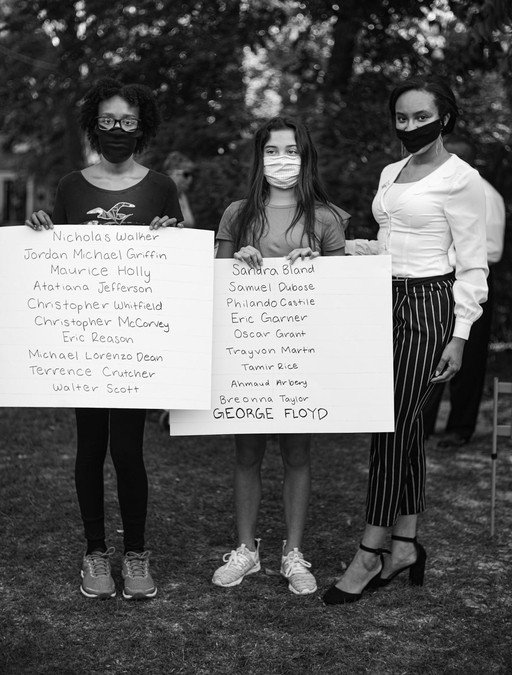 Nicholas Walker
Jordan Michael Griffin
Maurice Holly
Atatiana Jefferson
Christopher Whitfield
Christopher McCorvey
Eric Reason
Michael Lorenzo Dean
Terrence Crutcher
Walter Scott
Sandra Bland
Samuel Dubose
Philando Castile
Eric Garner
Oscar Grant
Trayvon Martin
Tamir Rice
Ahmaud Arbery
Breonna Taylor
GEORGE FLOYD